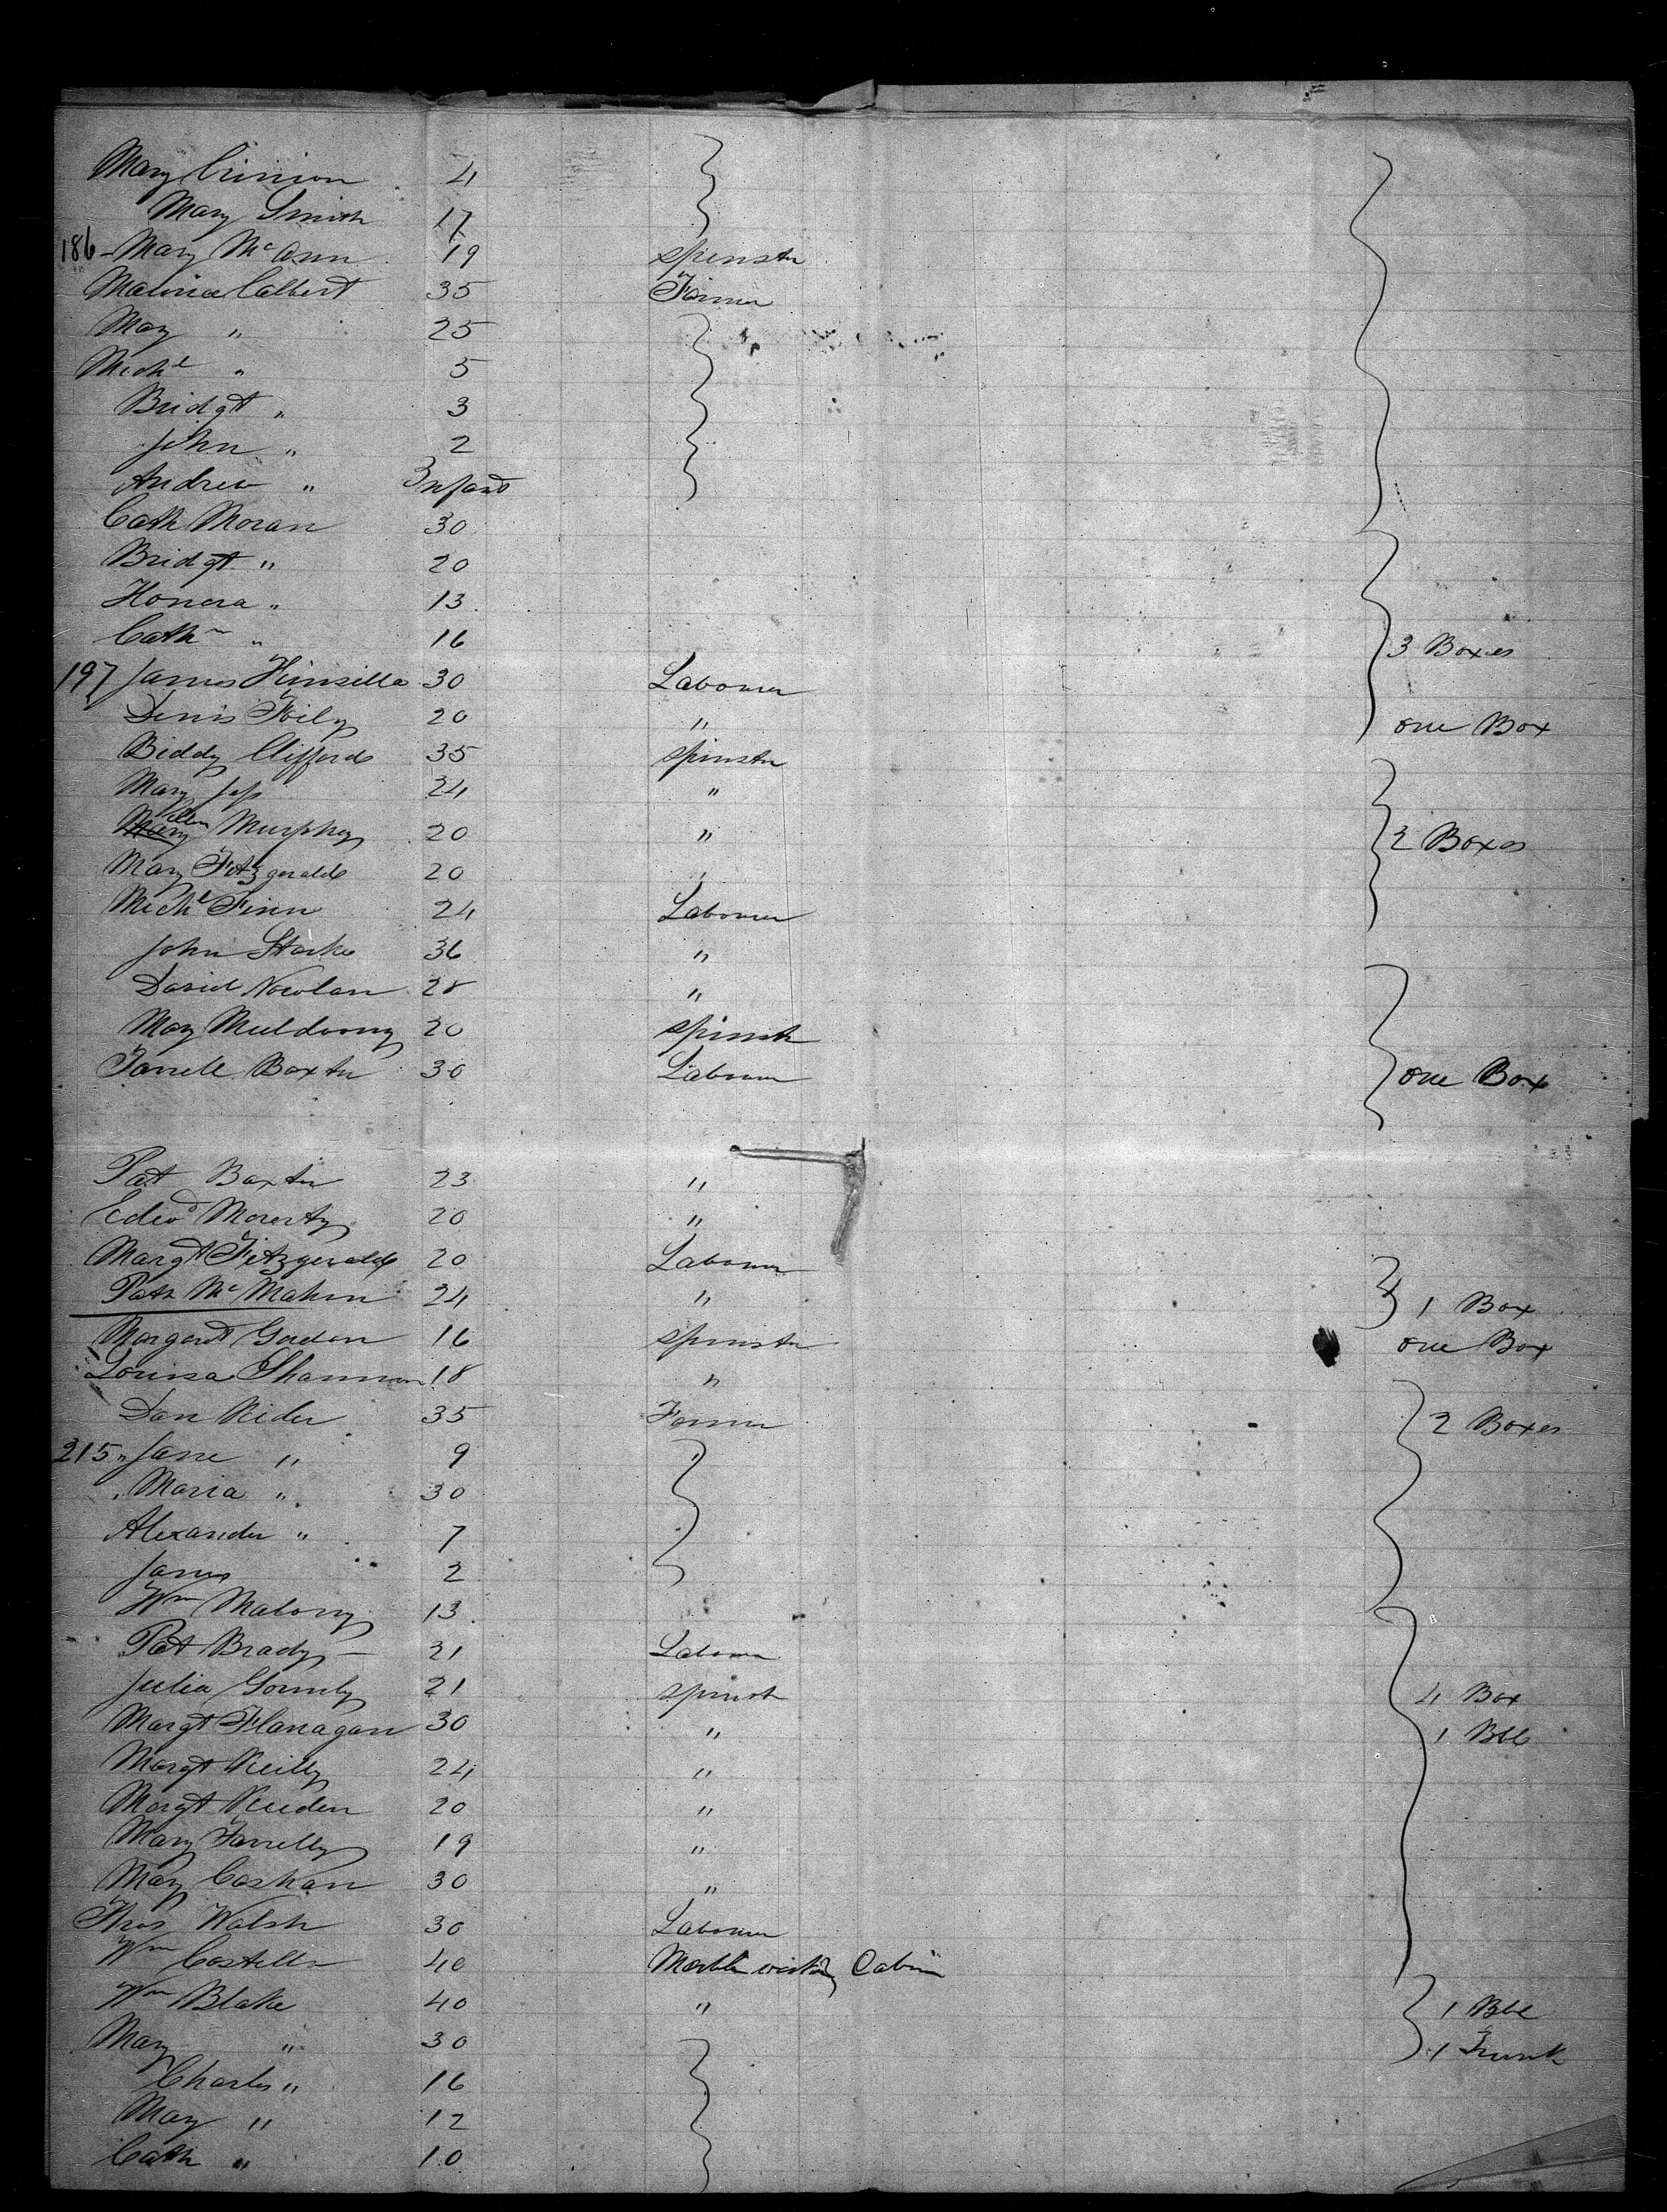 Mary Crinion 4
Mary Smith 17
186 - Mary McCann 19 spinster
Maurice Colbert 35 Farmer
Mary " 25
Michl " 5
Bridgt " 3
John " 2
Andrew " Infant
Cath Moran 30
Bridgt " 20
Honora " 13
Cathn " 16 3 Boxes
197 James 30 Labourer
Denis 20 " one Box
Biddy Clifford 35 spinster
Mary 24 "
Mary Ellen Murphy 20 " 2 Boxes
Mary Fitzgerald 20 "
Michl Finn 24 Labourer
John Starke 36 "
David Nowlan 28 "
Mary Muldoony 20 spinstr
Farrell Baxter 30 Labourer one Box
Pat Baxter 23 "
Edwd Morarty 20 "
Margt Fitzgerald 20 Labourer
Patk McMahon 24 " 1 Box
Margaret Gordon 16 spinster one Box
Louisa Shannon 18 "
Dan Rider 35 Farmer 2 Boxes
215 " Jane " 9
" Maria " 30
Alexander " 7
James 2
Wm Malony 13
Pat Brady - 21 Labourer
Julia Gormly 21 spinstr 4 Box
Margt Flanagan 30 " 1 Bbl
Margt Reilly 24 "
Margt 20 "
Mary Farrelly 19 "
Mary Cashan 30 "
Thos Walsh 30 Labourer
Wm Costello 40 Marble Cabin
Wm Blake 40 " 1 Bbl
Mary " 30 1 Trunk
Charles " 16
Mary " 12
Cath " 10